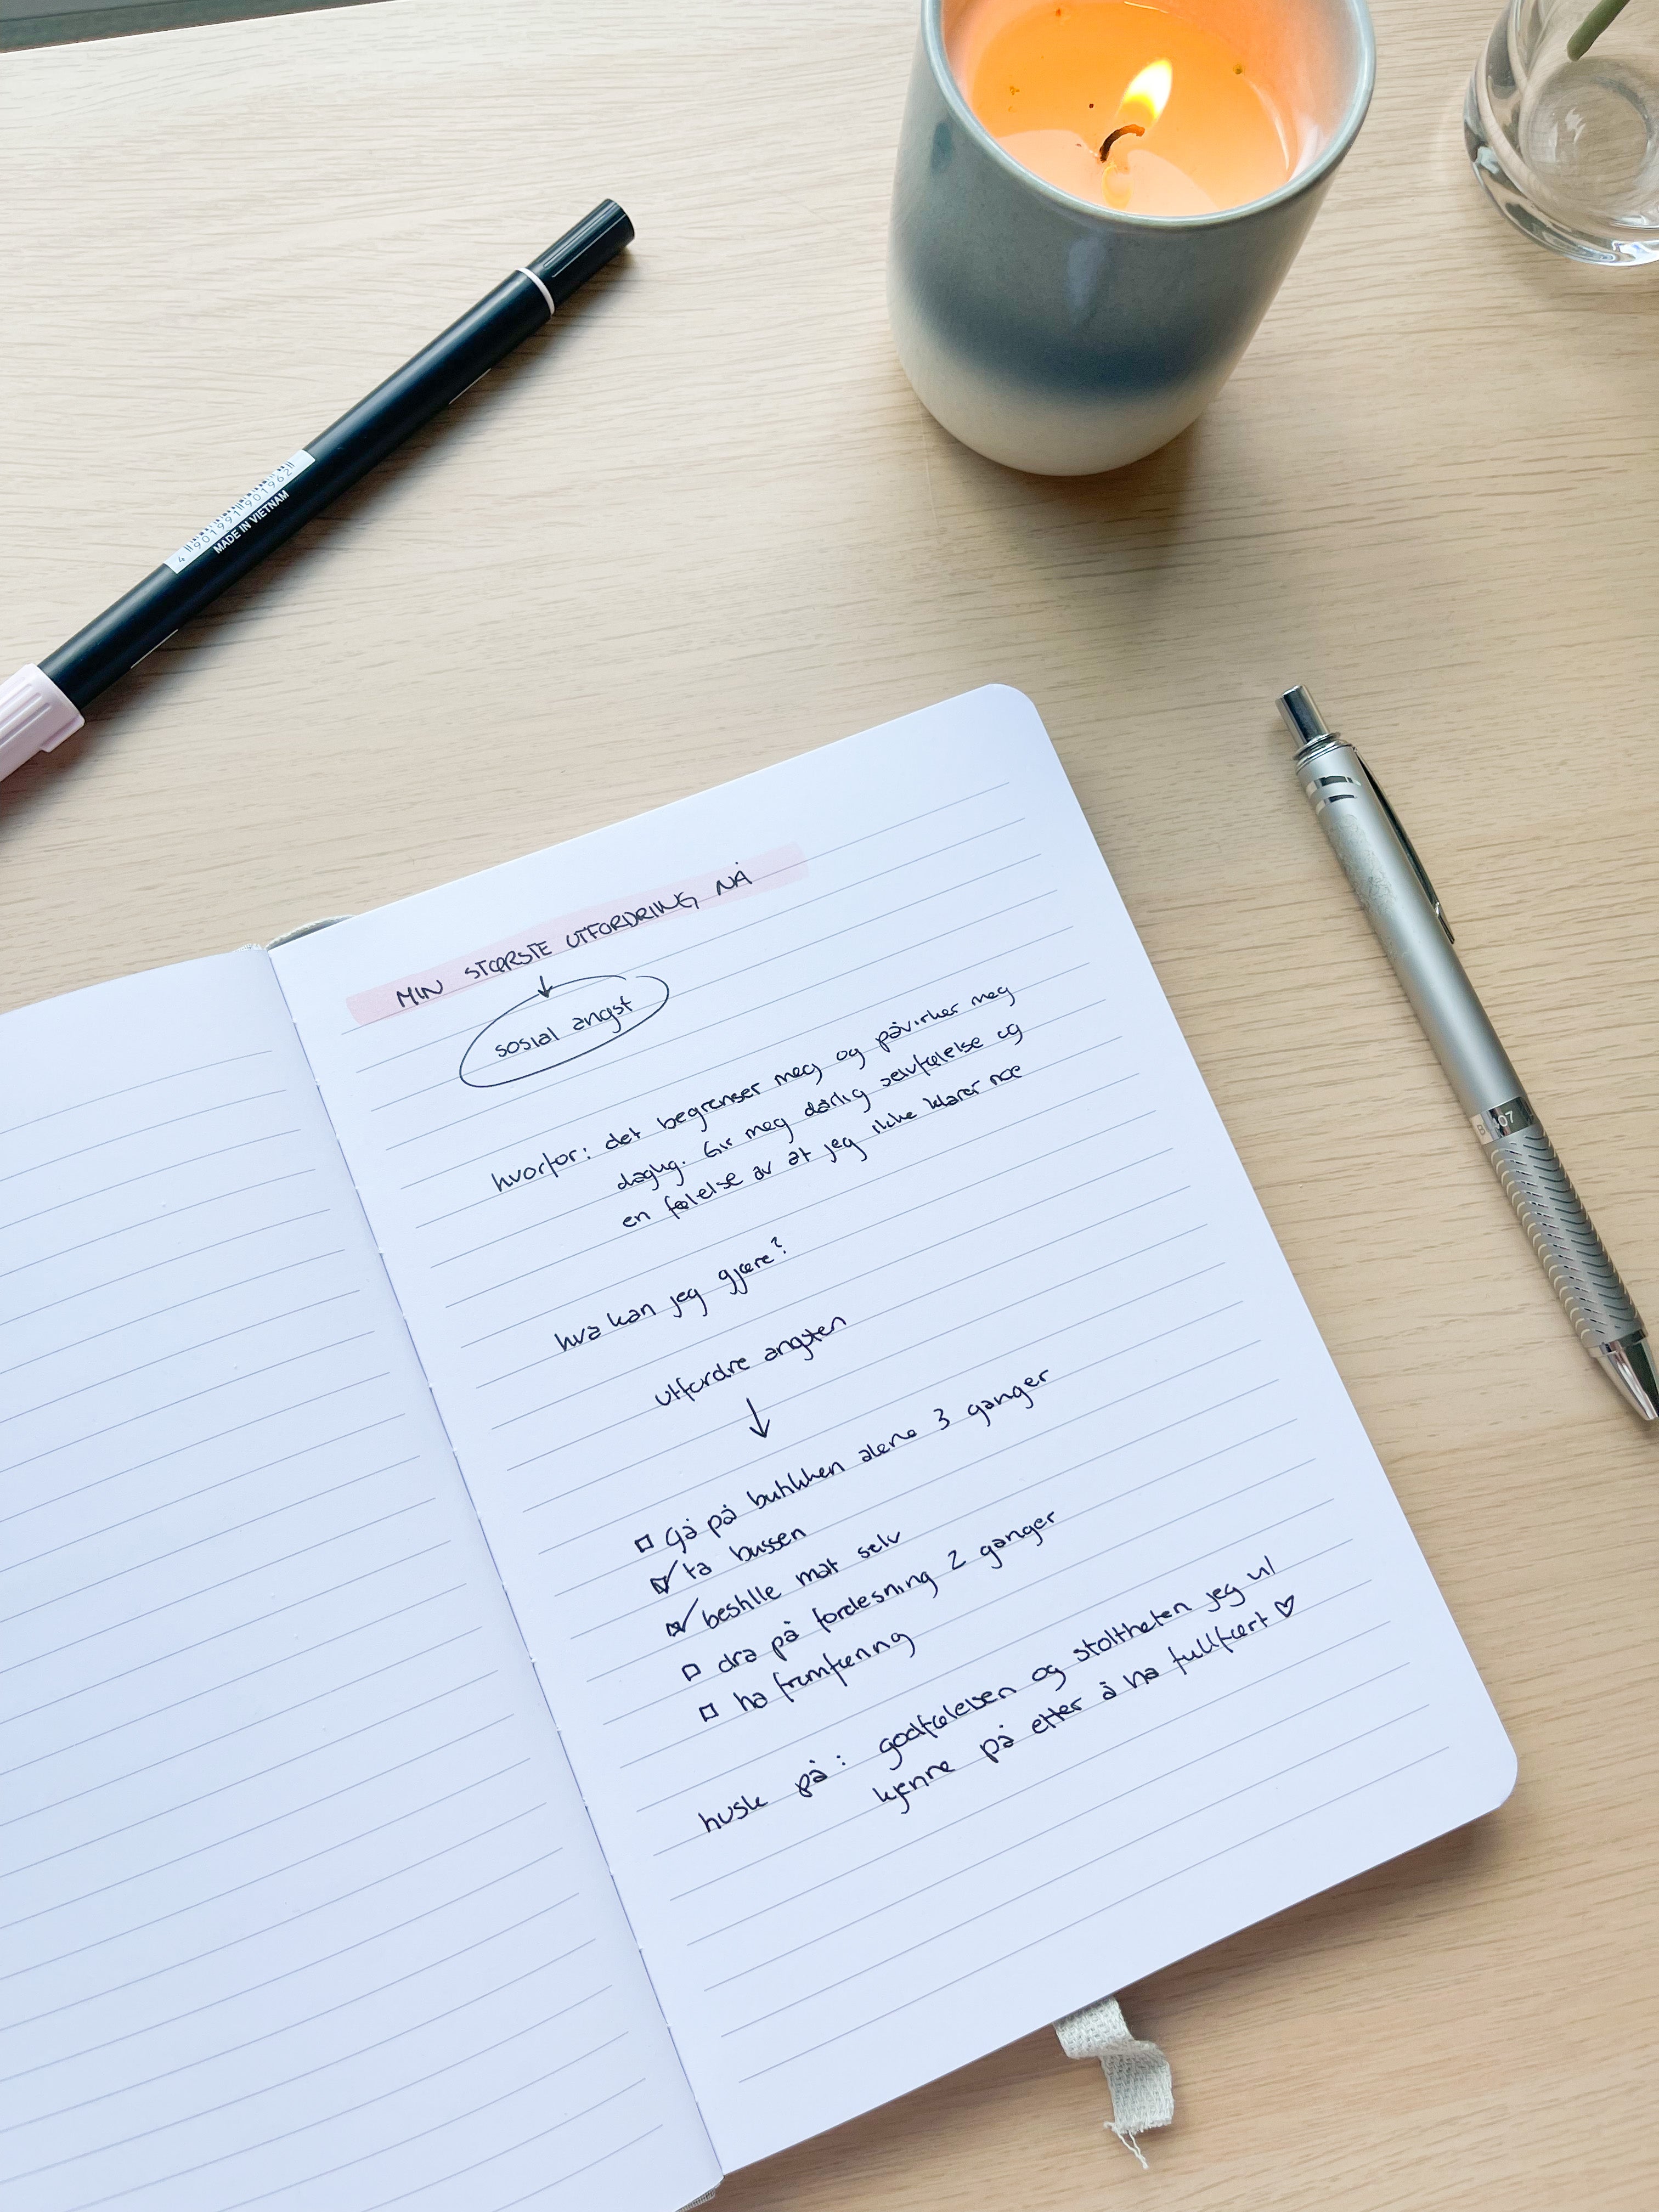 4 901991 901962
MADE IN VIETNAM
B 07
MIN STØRSTE UTFORDRING NÅ
↓
sosial angst
hvorfor: det begrenser meg og påvirker meg
daglig. Gir meg dårlig selvfølelse og
en følelse av at jeg ikke klarer noe
hva kan jeg gjøre?
utfordre angsten
↓
☐ Gå på butikken alene 3 ganger
☑ ta bussen
☑ bestille mat selv
☐ dra på forelesning 2 ganger
☐ ha fremføring
husk på: godfølelsen og stoltheten jeg vil
kjenne på etter å ha fullført ♡